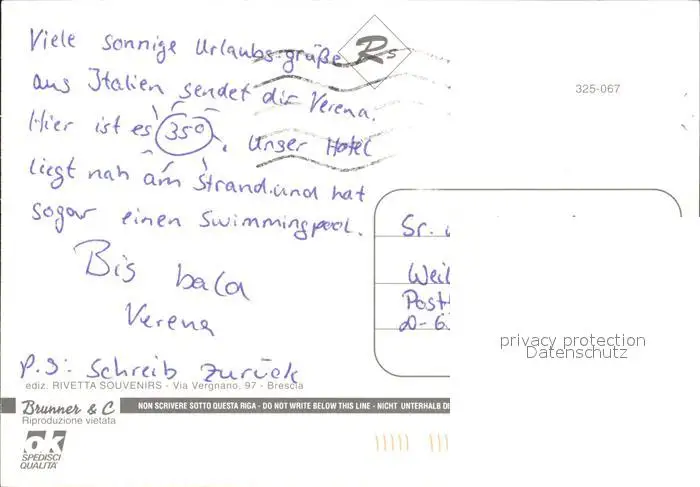 Viele sonnige Urlaubsgrüße
aus Italien sendet dir Verena.
Hier ist es 35°. Unser Hotel
liegt nah am Strand und hat
sogar einen Swimmingpool.
Bis bald
Verena
P.S: Schreib zurück
Rs
325-067
Sr.
Weil
Post
D-6
privacy protection
Datenschutz
ediz. RIVETTA SOUVENIRS - Via Vergnano, 97 - Brescia
Brunner & C
Riproduzione vietata
NON SCRIVERE SOTTO QUESTA RIGA - DO NOT WRITE BELOW THIS LINE - NICHT UNTERHALB DI
ok
SPEDISCI
QUALITA'